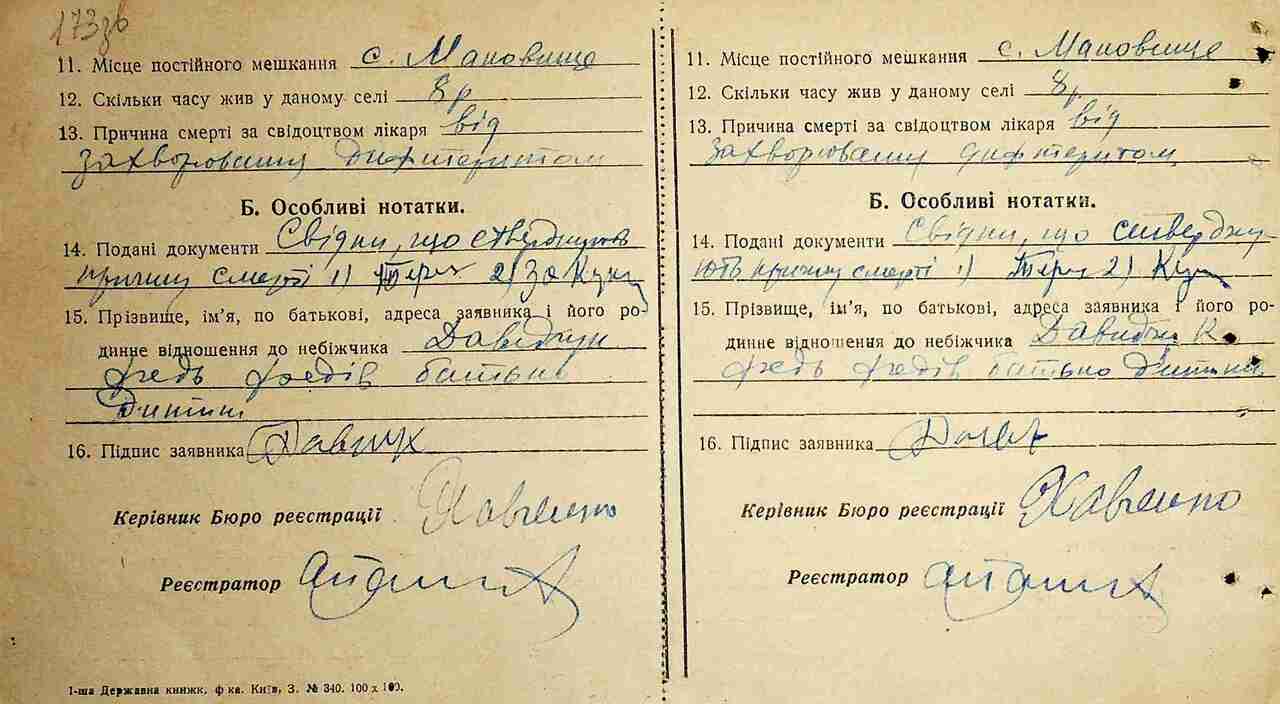 173зв
11. Місце постійного мешкання с. Маковище
12. Скільки часу жив у даному селі 8 р
13. Причина смерті за свідоцтвом лікаря від
захворювання дифтеритом
Б. Особливі нотатки.
14. Подані документи Свідки, що стверджують
причину смерті 1) 2)
15. Прізвище, ім'я, по батькові, адреса заявника і його ро-
динне відношення до небіжчика Давидчук
батько
дитини
16. Підпис заявника
Керівник Бюро реєстрації
Реєстратор
1-ша Державна книжк, ф ка. Київ, З. № 340. 100 x 100.
11. Місце постійного мешкання с. Маковище
12. Скільки часу жив у даному селі 8 р
13. Причина смерті за свідоцтвом лікаря від
захворювання дифтеритом
Б. Особливі нотатки.
14. Подані документи Свідки, що стверджу
ють причину смерті 1) 2)
15. Прізвище, ім'я, по батькові, адреса заявника і його ро-
динне відношення до небіжчика
батько дитини
16. Підпис заявника
Керівник Бюро реєстрації
Реєстратор